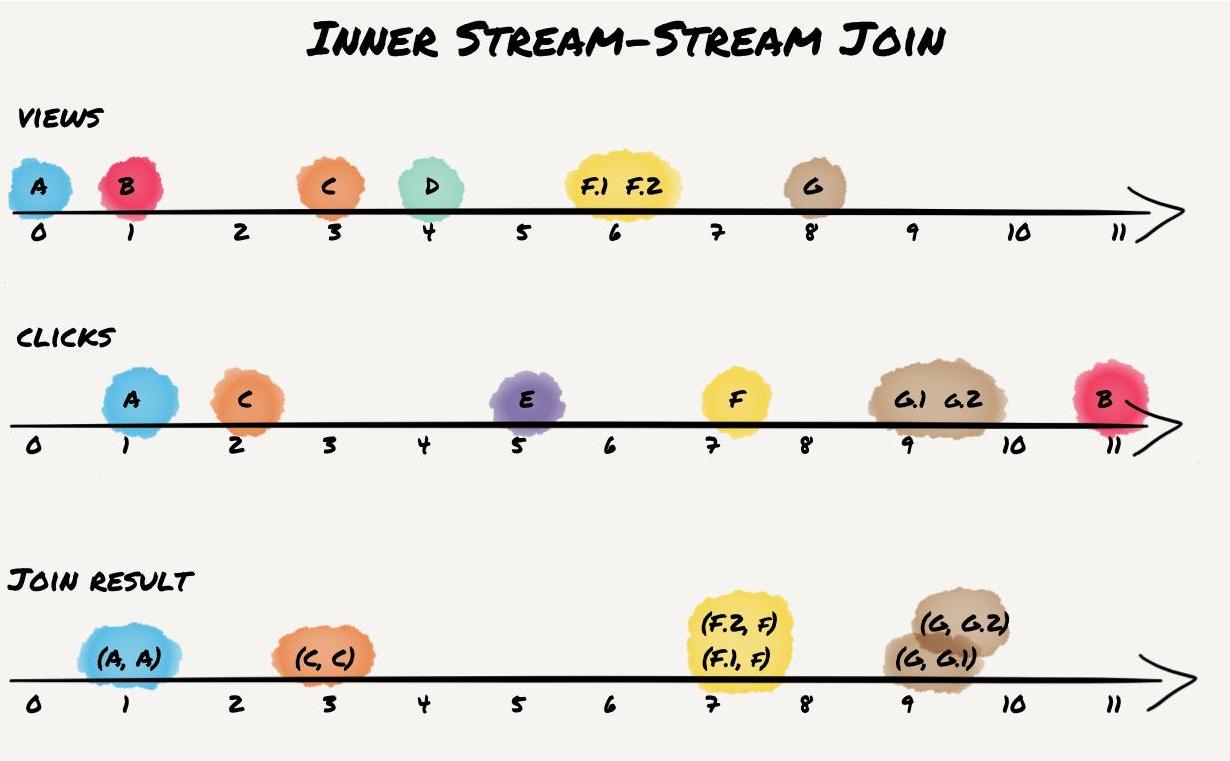 INNER STREAM-STREAM JOIN
VIEWS
A B C D F.1 F.2 G
0 1 2 3 4 5 6 7 8 9 10 11
CLICKS
A C E F G.1 G.2 B
0 1 2 3 4 5 6 7 8 9 10 11
JOIN RESULT
(F.2, F) (G, G.2)
(A, A) (C, C) (F.1, F) (G, G.1)
0 1 2 3 4 5 6 7 8 9 10 11